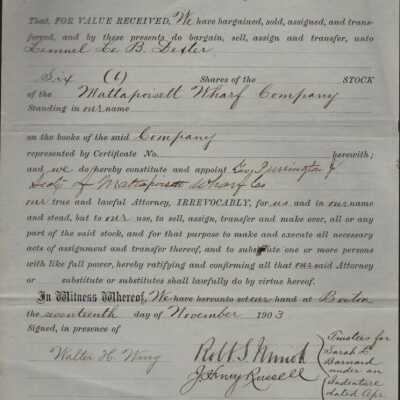 That, FOR VALUE RECEIVED, We have bargained, sold, assigned, and trans-
ferred, and by these presents do bargain, sell, assign and transfer, unto
Lemuel Le B. Dexter
Six (6) Shares of the STOCK
of the Mattapoisett Wharf Company
Standing in our name
on the books of the said Company
represented by Certificate No. herewith;
and we do hereby constitute and appoint Geo. Purrington Jr
of Mattapoisett Wharf Co
our true and lawful Attorney, IRREVOCABLY, for us and in our name
and stead, but to our use, to sell, assign, transfer and make over, all or any
part of the said stock, and for that purpose to make and execute all necessary
acts of assignment and transfer thereof, and to substitute one or more persons
with like full power, hereby ratifying and confirming all that our said Attorney
or substitute or substitutes shall lawfully do by virtue hereof.
In Witness Whereof, We have hereunto set our hand at Boston
the seventeenth day of November 1903
Signed, in presence of
Walter H. Wing
Robt S. Minot
J. Henry Russell
Trustees for
Sarah
Barnard
under an
Indenture
dated Apr